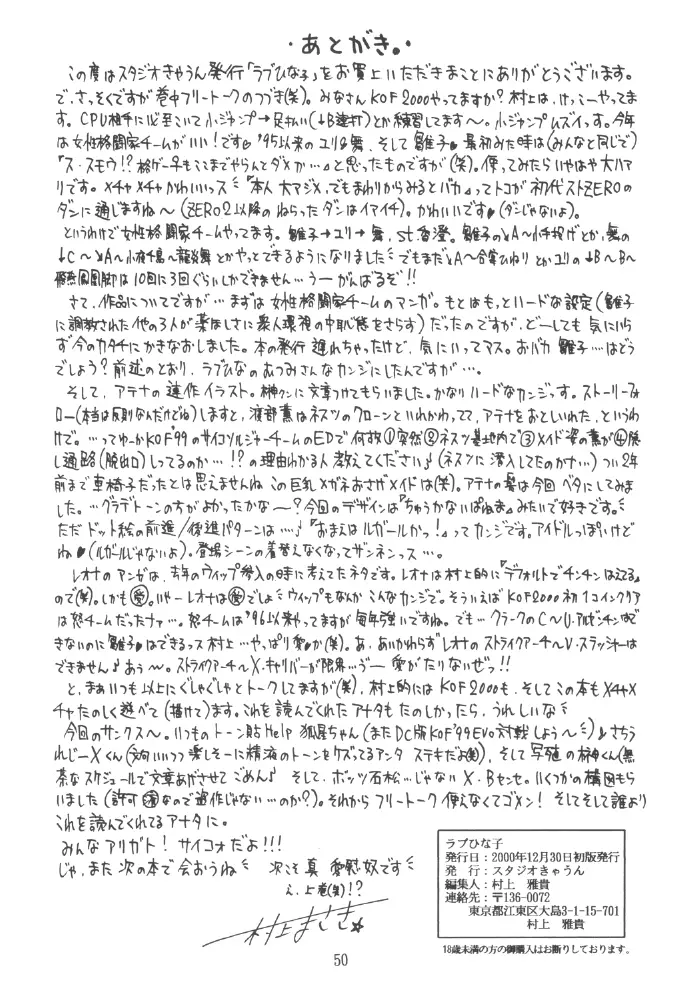 ・あとがき。・
この度はスタジオきゃうん発行「ラブひな子」をお買上いただきまことにありがとうございます。
で、さっそくですが巻中フリートークのつづき(笑)。みなさんKOF2000やってますか?村上は、けっこーやってま
す。CPU相手に 小ジャンプ→足払い(↓B連打)とか練習してます〜。小ジャンプムズイっす。今年
は女性格闘家チームがいい!です♥ '95以来のユリ&舞、そして雛子♥ 最初みた時は(みんなと同じで)
『ス・スモウ!?格ゲーキもここまでやらんとダメか…』と思ったものですが(笑)。使ってみたらいやはや大ハマ
リです。メチャメチャかわいいっス 『本人大マジメ、でもまわりからみるとバカ』ってトコが初代ストZEROの
ダンに通じますね〜(ZERO2以降のねらったダンはイマイチ)。かわいいです♥(ダンじゃないよ)。
というわけで女性格闘家チームやってます。雛子→ユリ→舞、st.香澄。雛子の A〜小手投げとか、舞の
↓C〜 A〜小夜千鳥〜龍炎舞とかやっとできるようになりました でもまだ A〜合掌ひねりとかユリの↓B〜B〜
飛燕鳳凰脚は10回に3回ぐらいしかできません…うーがんばるぞ!!
さて、作品についてですが…まずは女性格闘家チームのマンガ。もとはもっとハードな設定(雛子
に調教された他の3人が 衆人環視の中恥態をさらす)だったのですが、どーしても気にいら
ず今のカタチにかきなおしました。本の発行遅れちゃったけど、気にいってマス。おバカ雛子…はどう
でしょう?前述のとおり、ラブひなのあつみさんなカンジにしたんですが…。
そして、アテナの連作イラスト。榊クンに文章つけてもらいました。かなりハードなカンジっす。ストーリーフォ
ロー(本当は反則なんだけどね)しますと、渡部薫はネスツのクローンといれかわってて、アテナをおとしいれた、というわ
けで。…ってゆーかKOF'99のサイコソルジャーチームのEDで何故①突然②ネスツ基地内で③メイド姿の薫が④脱
し通路(脱出口)しってるのか…!?の理由わかる人教えてください♪(ネスツに潜入してたのかナ…)つい2年
前まで車椅子だったとは思えませんね この巨乳メガネおさげメイドは(笑)。アテナの髪は今回ベタにしてみま
した。…グラデトーンの方がよかったかな〜?今回のデザインは『ちゅうかないぱねま』みたいで好きです。
ただドット絵の前進/後進パターンは…♪『おまえはルガールかっ!』ってカンジです。アイドルっぽいけど
ね♥(ルガールじゃないよ)。登場シーンの着替えなくなってザンネンっス…。
レオナのマンガは、去年のウィップ参入の時に考えてたネタです。レオナは村上的に『デフォルトでチンチンはえてる』
ので(笑)。しかも 。いやーレオナは でしょ ウィップもなんかこんなカンジで。そういえばKOF2000初1コインクリア
は怒チームだったナァ…。怒チームは'96以来やってますが毎年強いですね。でも…クラークのC〜U.アルゼンチンは
できないのに雛子♥はできるっス村上…やっぱり愛♥か(笑)。あ、あいかわらずレオナのストライクアーチ〜V.スラッシャーは
できません♪あぅ〜。ストライクアーチ〜X.キャリバーが限界…う゛ー愛がたりないぜっ!!
と、まぁいつも以上にぐしゃぐしゃとトークしてますが(笑)、村上的にはKOF2000も、そしてこの本もメチャメ
チャたのしく遊べて(描けて)ます。これを読んでくれたアナタもたのしかったら、うれしいな
今回のサンクス〜。いつものトーン貼Help 狐晃ちゃん(またDC版KOF'99Evo対戦しよう〜 )♪さちう
れじーXくん(文句いいつつ楽しそーに精液のトーンをケズってるアンタ ステキだよ(笑))、そして写植の榊クン(無
茶なスケジュールで文章あげさせてごめん♪ そして、ボッツ石松…じゃないX・Bセンセ。いくつかの構図もら
いました(許可済なので盗作じゃない…のか?)。それからフリートーク使えなくてゴメン!そしてそして誰より
これを読んでくれてるアナタに。
みんなアリガト!サイコォだよ!!!
じゃ、また次の本で会おうね 次こそ真 慰奴です
え、上巻(笑)!?
村上まさき☆
ラブひな子
発行日:2000年12月30日初版発行
発 行:スタジオきゃうん
編集人:村上 雅貴
連絡先:〒136-0072
東京都江東区大島3-1-15-701
村上 雅貴
18歳未満の方の御購入はお断りしております。
50